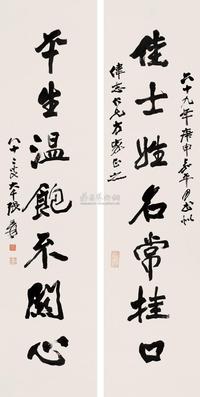 佳士姓名常挂口
平生溫飽不關心
六十九年庚申嘉平月書似
偉志仁兄方家正之
八十二叟大千張爰